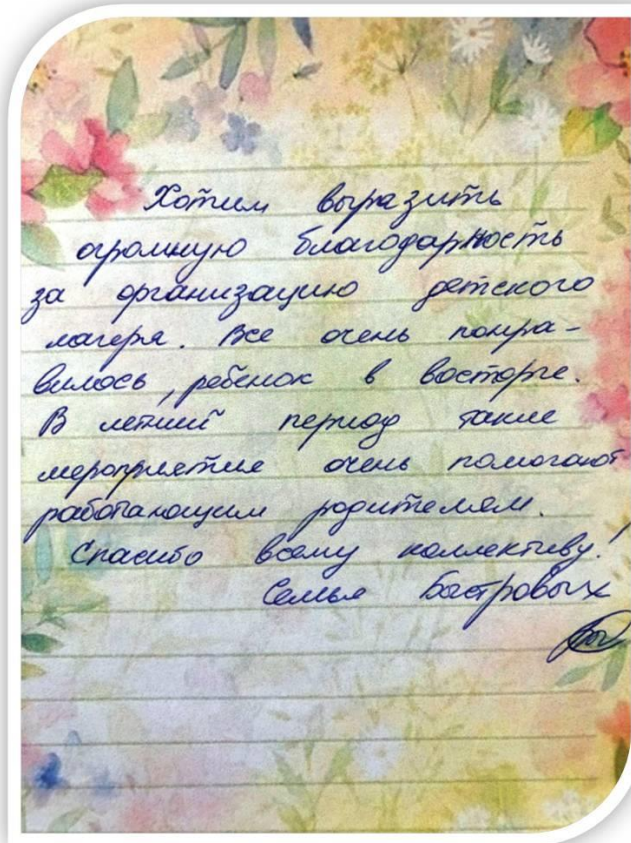 Хотим выразить
огромную благодарность
за организацию детского
лагеря. Все очень понра-
вилось, ребенок в восторге.
В летний период такие
мероприятие очень помогают
работающим родителям.
Спасибо всему коллективу!
Семья Быстровых